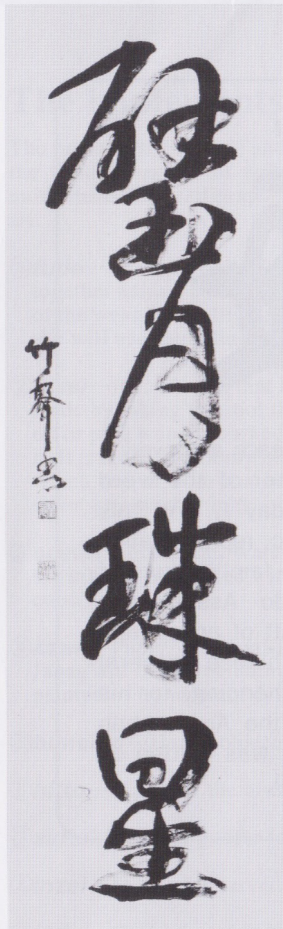 璧月珠星
竹聲書